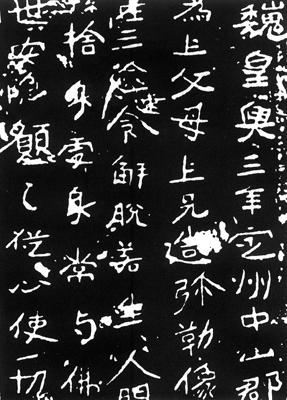 魏皇興三年定州中山郡
為上父母上兄造弥勒像
三塗令解脫若生人間
捨身受身常与佛
世安隐願々從心使一切